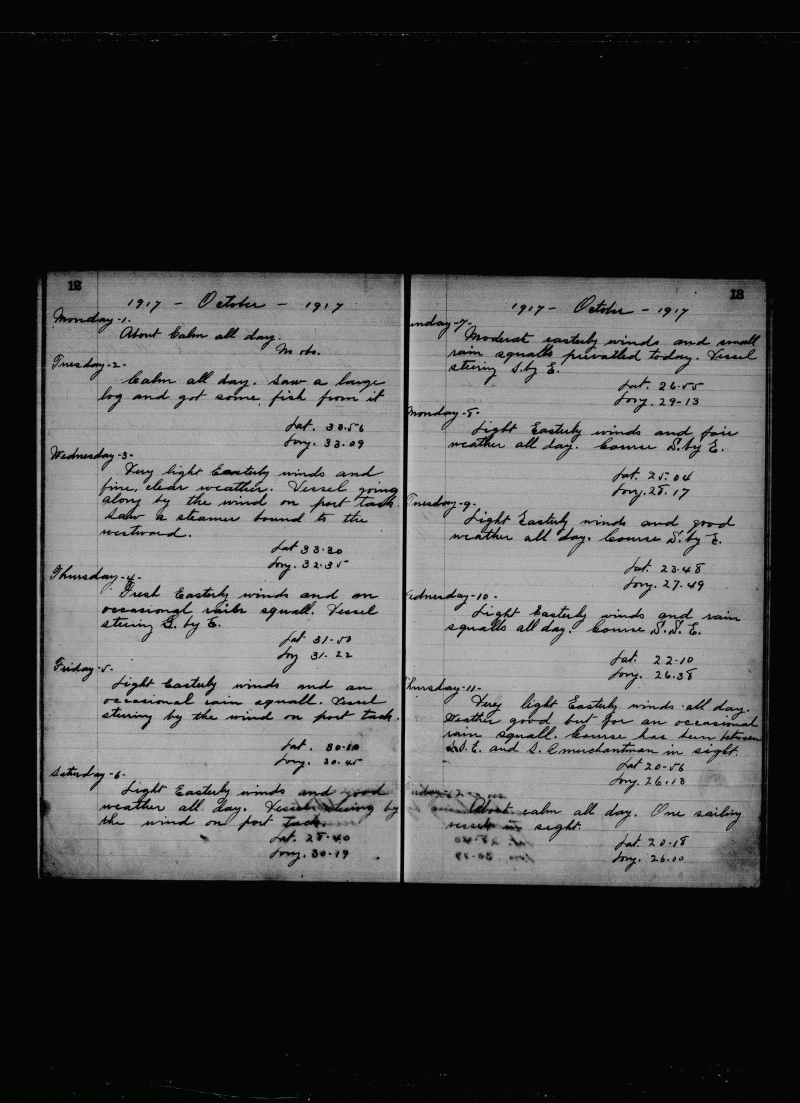 12
1917 - October - 1917
Monday-1-
About Calm all day.
No obs.
Tuesday-2-
Calm all day. Saw a large
log and got some fish from it
Lat. 33.56
Long. 33.09
Wednesday-3-
Very light Easterly winds and
fine, clear weather. Vessel going
along by the wind on port tack.
Saw a steamer bound to the
westward.
Lat 33.20
Long. 32.35
Thursday-4-
Fresh Easterly winds and an
occasional rain squall. Vessel
stering by E.
Lat 31-50
Long 31-22
Friday-5-
Light Easterly winds and an
occasional rain squall. Vessel
stering by the wind on port tack.
Lat. 30.10
Long. 30.45
Saturday-6-
Light Easterly winds and good
weather all day. Vessel stering by
the wind on port tack.
Lat. 28.40
Long. 30-19
13
1917 - October - 1917
unday-7-
Moderat easterly winds and small
rain squalls prevailed today. Vessel
stering S. by E.
Lat. 26.55
Long. 29-13
Monday-8-
Light Easterly winds and fair
weather all day. Course S. by E.
Lat. 25.04
Long. 28.17
Tuesday-9-
Light Easterly winds and good
weather all day. Course S. by E.
Lat. 23.48
Long. 27.49
ednesday-10-
Light Easterly winds and rain
squalls all day. Course S.S.E.
Lat. 22-10
Long. 26.38
hursday-11-
Very light Easterly winds all day.
Weather good but for an occasional
rain squall. Course has been between
S.S.E. and S. merchantman in sight.
Lat 20-56
Long. 26.13
About calm all day. One sailing
vessel in sight.
Lat. 20.18
Long. 26.00